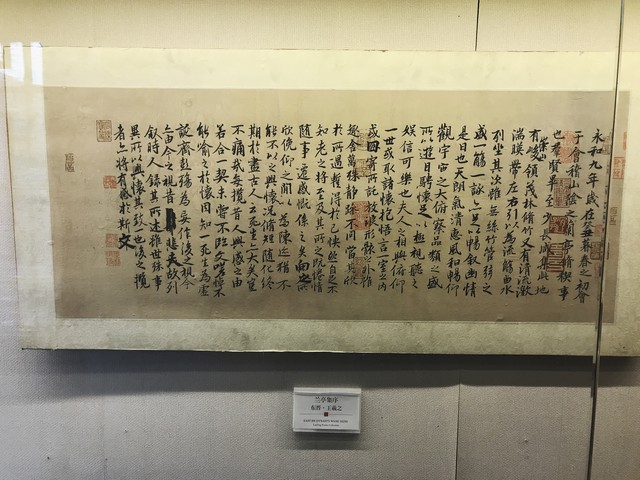 永和九年歲在癸丑暮春之初會
于會稽山陰之蘭亭脩稧事
也羣賢畢至少長咸集此地
有崇山峻領茂林脩竹又有清流激
湍暎帶左右引以為流觴曲水
列坐其次雖無絲竹管弦之
盛一觴一詠亦足以暢叙幽情
是日也天朗氣清惠風和暢仰
觀宇宙之大俯察品類之盛
所以遊目騁懷足以極視聽之
娛信可樂也夫人之相與俯仰
一世或取諸懷抱悟言一室之內
或因寄所託放浪形骸之外雖
趣舍萬殊靜躁不同當其欣
於所遇蹔得於己快然自足不
知老之將至及其所之既惓情
隨事遷感慨係之矣向之所
欣俛仰之閒以為陳迹猶不
能不以之興懷況脩短隨化終
期於盡古人云死生亦大矣豈
不痛哉每攬昔人興感之由
若合一契未嘗不臨文嗟悼不
能喻之於懷固知一死生為虛
誕齊彭殤為妄作後之視今
亦由今之視昔悲夫故列
叙時人錄其所述雖世殊事
異所以興懷其致一也後之攬
者亦將有感於斯文
兰亭集序
东晋·王羲之